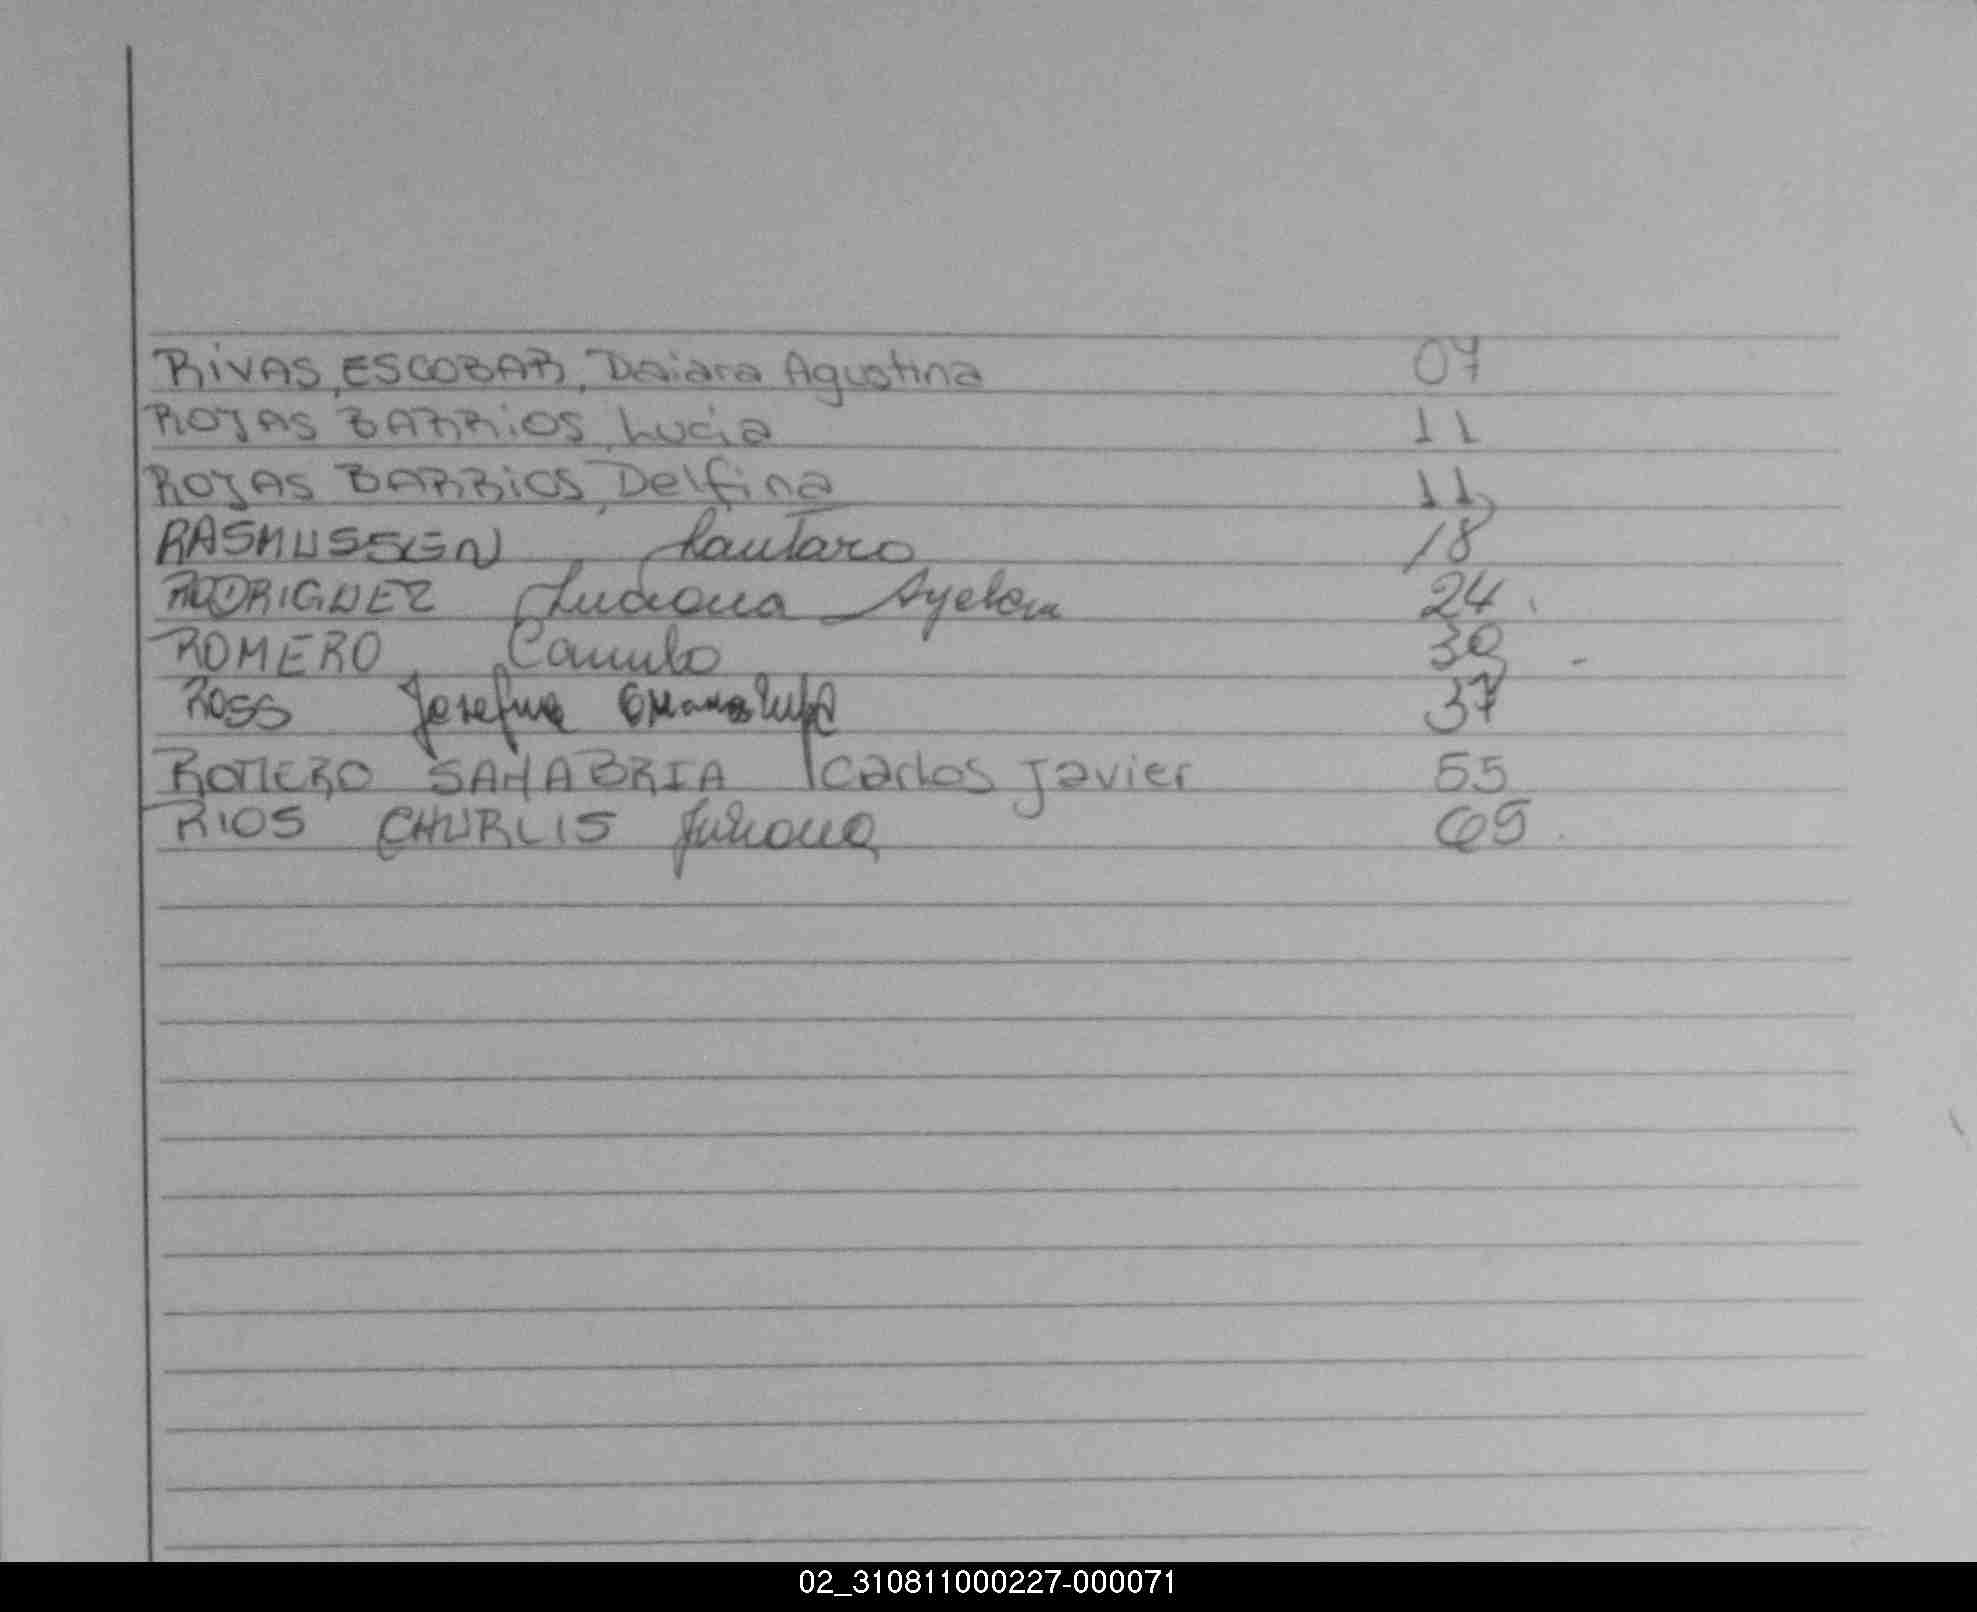 RIVAS, ESCOBAR, Daiara Agustina 07
ROJAS BARRIOS, Lucia 11
ROJAS BARRIOS, Delfina 11
RASMUSSEN Lautaro 18
RODRIGUEZ Luciana Ayelen 24
ROMERO Camilo 30
ROSS Josefina 37
ROMERO SANABRIA Carlos Javier 55
RIOS CHURLIS Juliana 65
02_310811000227-000071